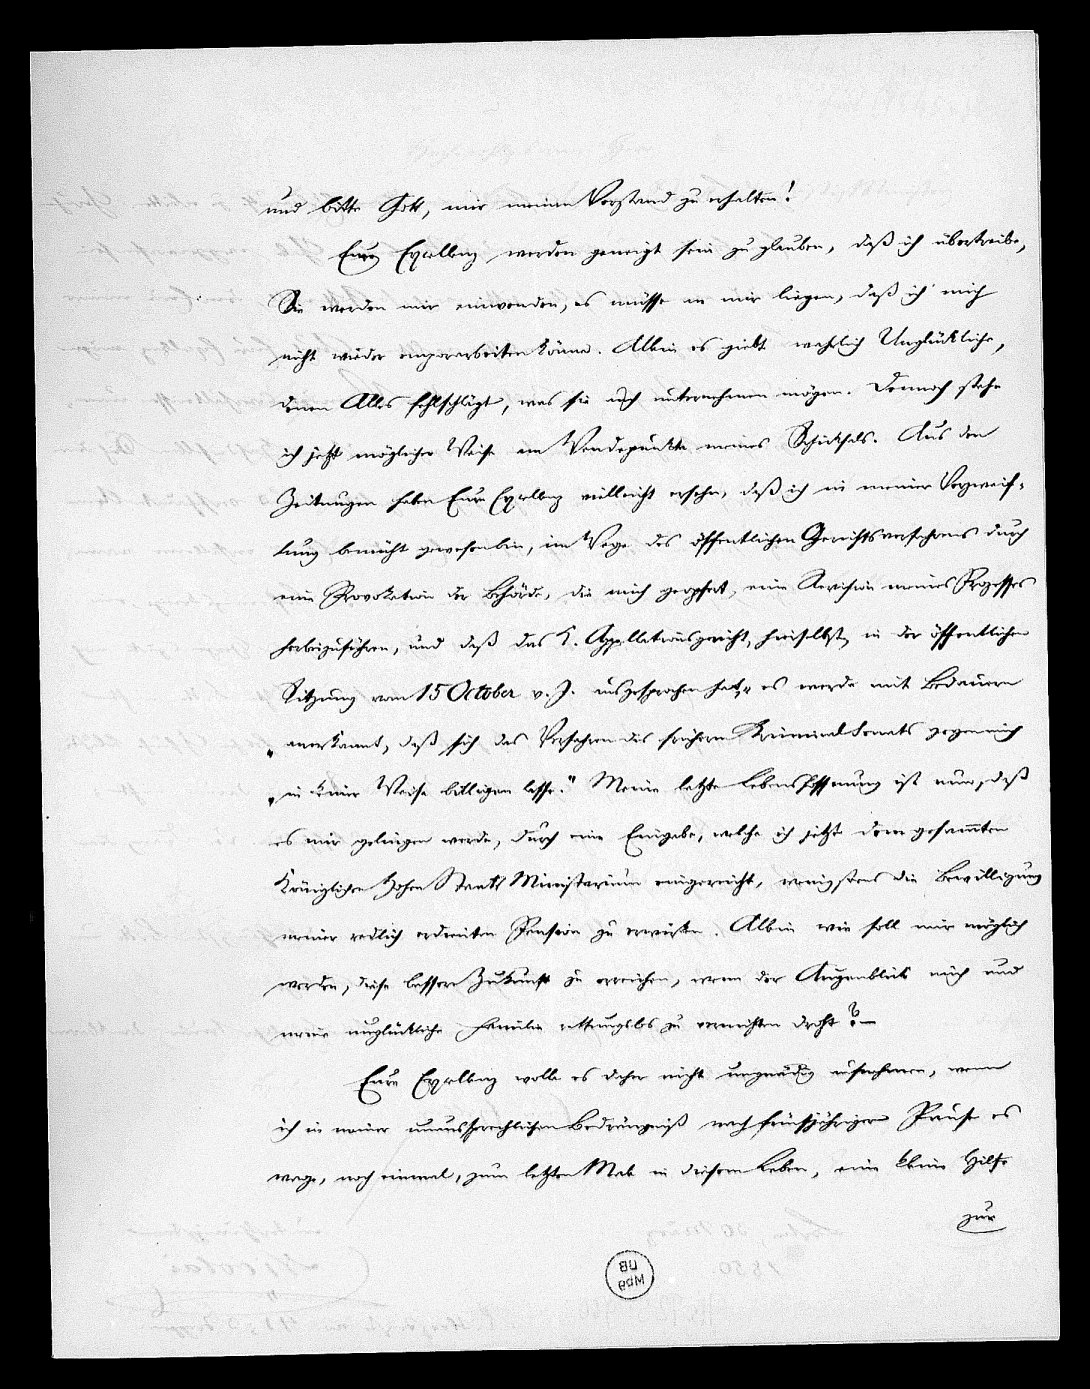 und bitte Gott, mir meinen Verstand zu erhalten!
Eure Excellenz werden geneigt sein zu glauben, daß ich übertreibe,
Sie werden mir einwenden, es müsse an mir liegen, daß ich mich
nicht wieder emporarbeiten könne. Allein es giebt wahrlich Unglückliche,
denen Alles fehlschlägt, was sie auch unternehmen mögen. Dennoch stehe
ich jetzt möglicher Weise am Wendepunkte meines Schicksals. Aus den
Zeitungen haben Eure Excellenz vielleicht ersehen, daß ich in meiner Verzweif-
lung bemüht gewesen bin, im Wege des öffentlichen Gerichtsverfahrens durch
eine Provokation der Behörde, die mich geopfert, eine Revision meines Prozesses
herbeizuführen, und daß das K. Appellationsgericht hierselbst in der öffentlichen
Sitzung vom 15 October v. J. ausgesprochen hat, „es werde mit Bedauern
„anerkannt, daß sich das Verfahren des frühern Kriminalsenats gegen mich
„in keiner Weise billigen lasse." Meine letzte Lebenshoffnung ist nun, daß
es mir gelingen werde, durch eine Eingabe, welche ich jetzt dem gesammten
Königlichen Hohen Staats Ministerium eingereicht, wenigstens die Bewilligung
meiner redlich verdienten Pension zu erwirken. Allein wie soll mir möglich
werden, diese bessere Zukunft zu erreichen, wenn der Augenblick mich und
meine unglückliche Familie rettungslos zu vernichten droht? –
Eure Excellenz wolle es daher nicht ungnädig aufnehmen, wenn
ich in meiner unaussprechlichen Bedrängniß nach fünfjähriger Pause es
wage, noch einmal, zum letzten Male in diesem Leben, eine kleine Hilfe
zur
UB
Mbg